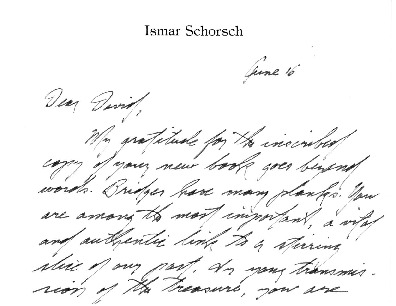 Ismar Schorsch
June 16
Dear David,
My gratitude for the inscribed
copy of your new book goes beyond
words. Bridges have many planks. You
are among the most important, a vital
and authentic link to a stirring
slice of our past. In your transmis-
sion of the treasure, you are